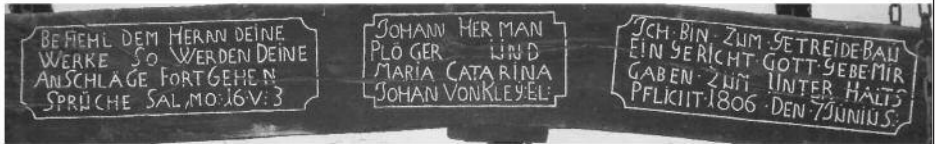 BEFIEHL DEM HERRN DEINE
WERKE SO WERDEN DEINE
ANSCHLÄGE FORTGEHEN
SPRÜCHE SAL,MO:16·V:3
JOHANN HERMAN
PLÖGER UND
MARIA CATARINA
JOHAN VONKLEY:EL:
ICH·BIN·ZUM·GETREIDE·BAU
EIN GERICHT·GOTT·GEBE MIR
GABEN·ZUM UNTERHALTS
PFLICHT·1806·DEN 7JUNIUS: